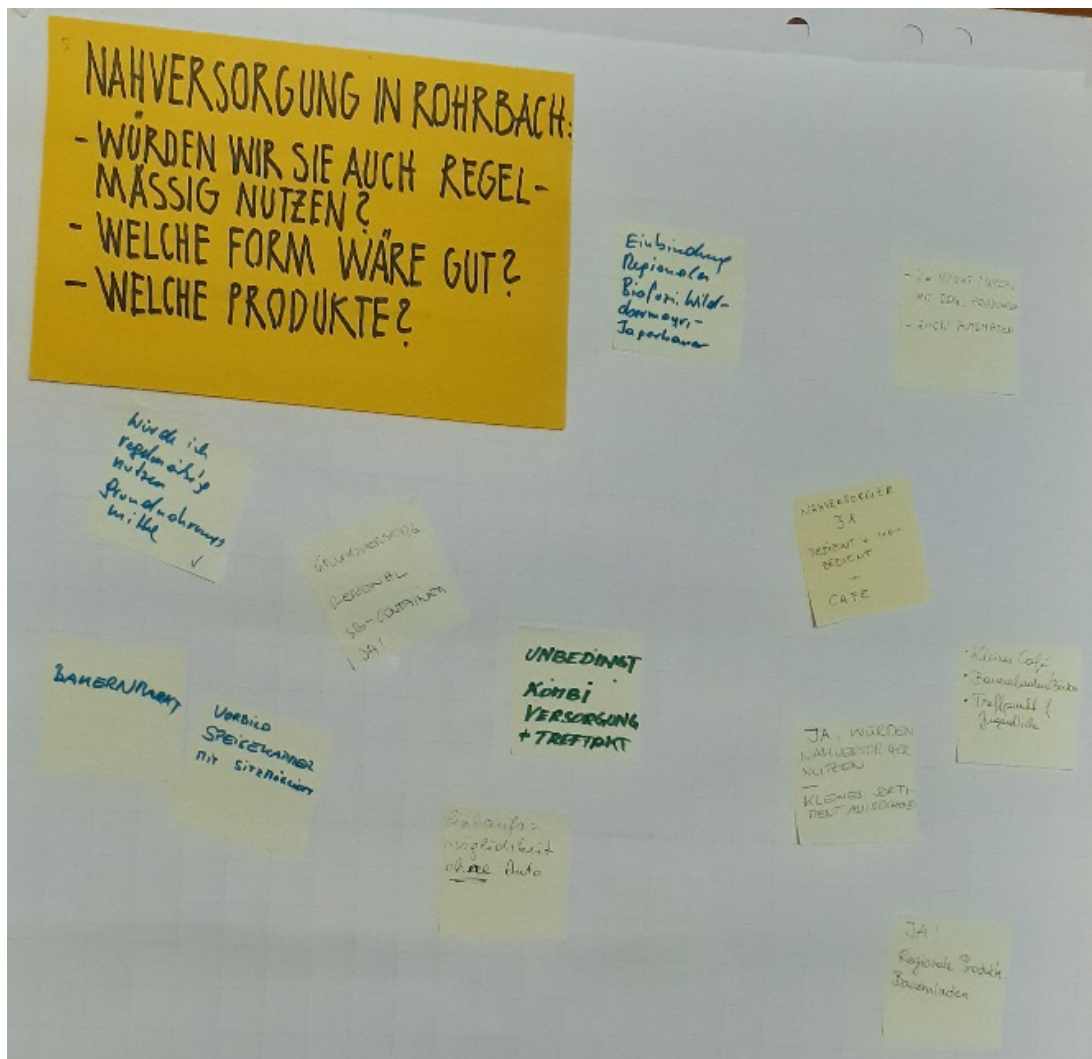 NAHVERSORGUNG IN ROHRBACH:
- WÜRDEN WIR SIE AUCH REGEL-
MÄSSIG NUTZEN?
- WELCHE FORM WÄRE GUT?
- WELCHE PRODUKTE?
Einbindung
Regionaler
MIT
- AUTOMATEN
Würde ich
regelmäßig
nutzen
Grundnahrungs
mittel
REGIONAL
SB-CONTAINER
JA!
NAHVERSORGER
BEDIENT +
BEDIENT
+
CAFE
BAUERNMARKT
VORBILD
SPEISEKAMMER
MIT
UNBEDINGT
KOMBI
VERSORGUNG
+ TREFFPKT
• Kleines Café
• Bauernladen
• Treffpunkt f.
Jugendliche
JA, WÜRDEN
NAHVERSORGER
NUTZEN
—
KLEINES SORTI-
MENT
Einkaufs=
möglichkeit
ohne Auto
JA!
Regionale Produkte
Bauernladen